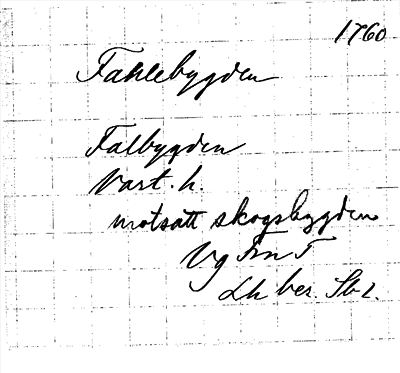 1760
Fahlebygden
Falbygden
Vart. h.
motsatt skogsbygden
Vg Frn F
Lh ber. Sb 2.